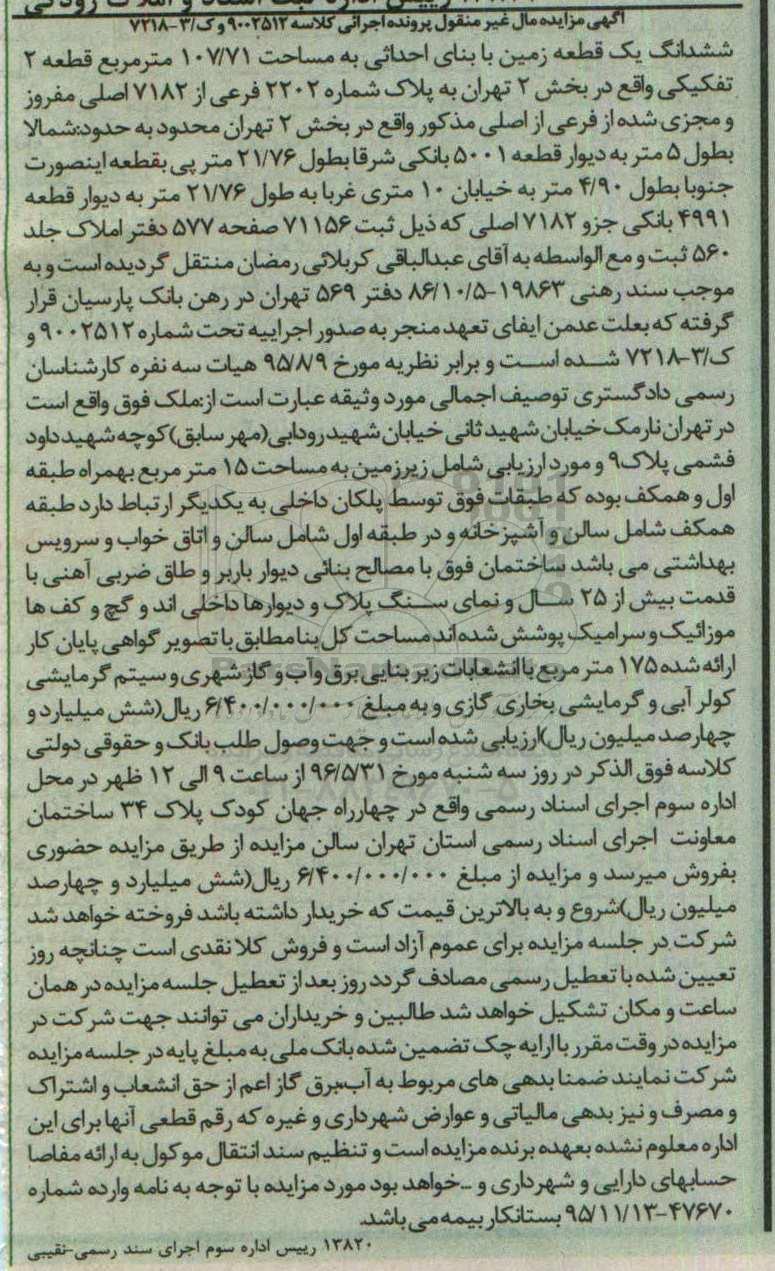 آگهی مزایده مال غیر منقول پرونده اجرائی کلاسه ۹۰۰۲۵۱۲ و ک/۳-۷۲۱۸
ششدانگ یک قطعه زمین با بنای احداثی به مساحت ۱۰۷/۷۱ مترمربع قطعه ۲
تفکیکی واقع در بخش ۲ تهران به پلاک شماره ۲۲۰۲ فرعی از ۷۱۸۲ اصلی مفروز
و مجزی شده از فرعی از اصلی مذکور واقع در بخش ۲ تهران محدود به حدود:شمالا
بطول ۵ متر به دیوار قطعه ۵۰۰۱ بانکی شرقا بطول ۲۱/۷۶ متر پی بقطعه اینصورت
جنوبا بطول ۴/۹۰ متر به خیابان ۱۰ متری غربا به طول ۲۱/۷۶ متر به دیوار قطعه
۴۹۹۱ بانکی جزو ۷۱۸۲ اصلی که ذیل ثبت ۷۱۱۵۶ صفحه ۵۷۷ دفتر املاک جلد
۵۶۰ ثبت و مع الواسطه به آقای عبدالباقی کربلائی رمضان منتقل گردیده است و به
موجب سند رهنی ۱۹۸۶۳-۸۶/۱۰/۵ دفتر ۵۶۹ تهران در رهن بانک پارسیان قرار
گرفته که بعلت عدمن ایفای تعهد منجر به صدور اجراییه تحت شماره ۹۰۰۲۵۱۲ و
ک/۳-۷۲۱۸ شده است و برابر نظریه مورخ ۹۵/۸/۹ هیات سه نفره کارشناسان
رسمی دادگستری توصیف اجمالی مورد وثیقه عبارت است از:ملک فوق واقع است
در تهران نارمک خیابان شهید ثانی خیابان شهید رودابی(مهر سابق)کوچه شهید داود
فشمی پلاک۹ و مورد ارزیابی شامل زیرزمین به مساحت ۱۵ متر مربع بهمراه طبقه
اول و همکف بوده که طبقات فوق توسط پلکان داخلی به یکدیگر ارتباط دارد طبقه
همکف شامل سالن و آشپزخانه و در طبقه اول شامل سالن و اتاق خواب و سرویس
بهداشتی می باشد ساختمان فوق با مصالح بنائی دیوار باربر و طاق ضربی آهنی با
قدمت بیش از ۲۵ سال و نمای سنگ پلاک و دیوارها داخلی اند و گچ و کف ها
موزائیک و سرامیک پوشش شده اند مساحت کل بنا مطابق با تصویر گواهی پایان کار
ارائه شده ۱۷۵ متر مربع با انشعابات زیر بنایی برق وآب و گاز شهری و سیتم گرمایشی
کولر آبی و گرمایشی بخاری گازی و به مبلغ ۶/۴۰۰/۰۰۰/۰۰۰ ریال(شش میلیارد و
چهارصد میلیون ریال)ارزیابی شده است و جهت وصول طلب بانک و حقوقی دولتی
کلاسه فوق الذکر در روز سه شنبه مورخ ۹۶/۵/۳۱ از ساعت ۹ الی ۱۲ ظهر در محل
اداره سوم اجرای اسناد رسمی واقع در چهارراه جهان کودک پلاک ۳۴ ساختمان
معاونت اجرای اسناد رسمی استان تهران سالن مزایده از طریق مزایده حضوری
بفروش میرسد و مزایده از مبلغ ۶/۴۰۰/۰۰۰/۰۰۰ ریال(شش میلیارد و چهارصد
میلیون ریال)شروع و به بالاترین قیمت که خریدار داشته باشد فروخته خواهد شد
شرکت در جلسه مزایده برای عموم آزاد است و فروش کلا نقدی است چنانچه روز
تعیین شده با تعطیل رسمی مصادف گردد روز بعد از تعطیل جلسه مزایده در همان
ساعت و مکان تشکیل خواهد شد طالبین و خریداران می توانند جهت شرکت در
مزایده در وقت مقرر باارایه چک تضمین شده بانک ملی به مبلغ پایه در جلسه مزایده
شرکت نمایند ضمنا بدهی های مربوط به آب،برق گاز اعم از حق انشعاب و اشتراک
و مصرف و نیز بدهی مالیاتی و عوارض شهرداری و غیره که رقم قطعی آنها برای این
اداره معلوم نشده بعهده برنده مزایده است و تنظیم سند انتقال موکول به ارائه مفاصا
حسابهای دارایی و شهرداری و ...خواهد بود مورد مزایده با توجه به نامه وارده شماره
۴۷۶۷۰-۹۵/۱۱/۱۳ بستانکار بیمه می باشد.
۱۳۸۲۰ رییس اداره سوم اجرای سند رسمی-نقیبی